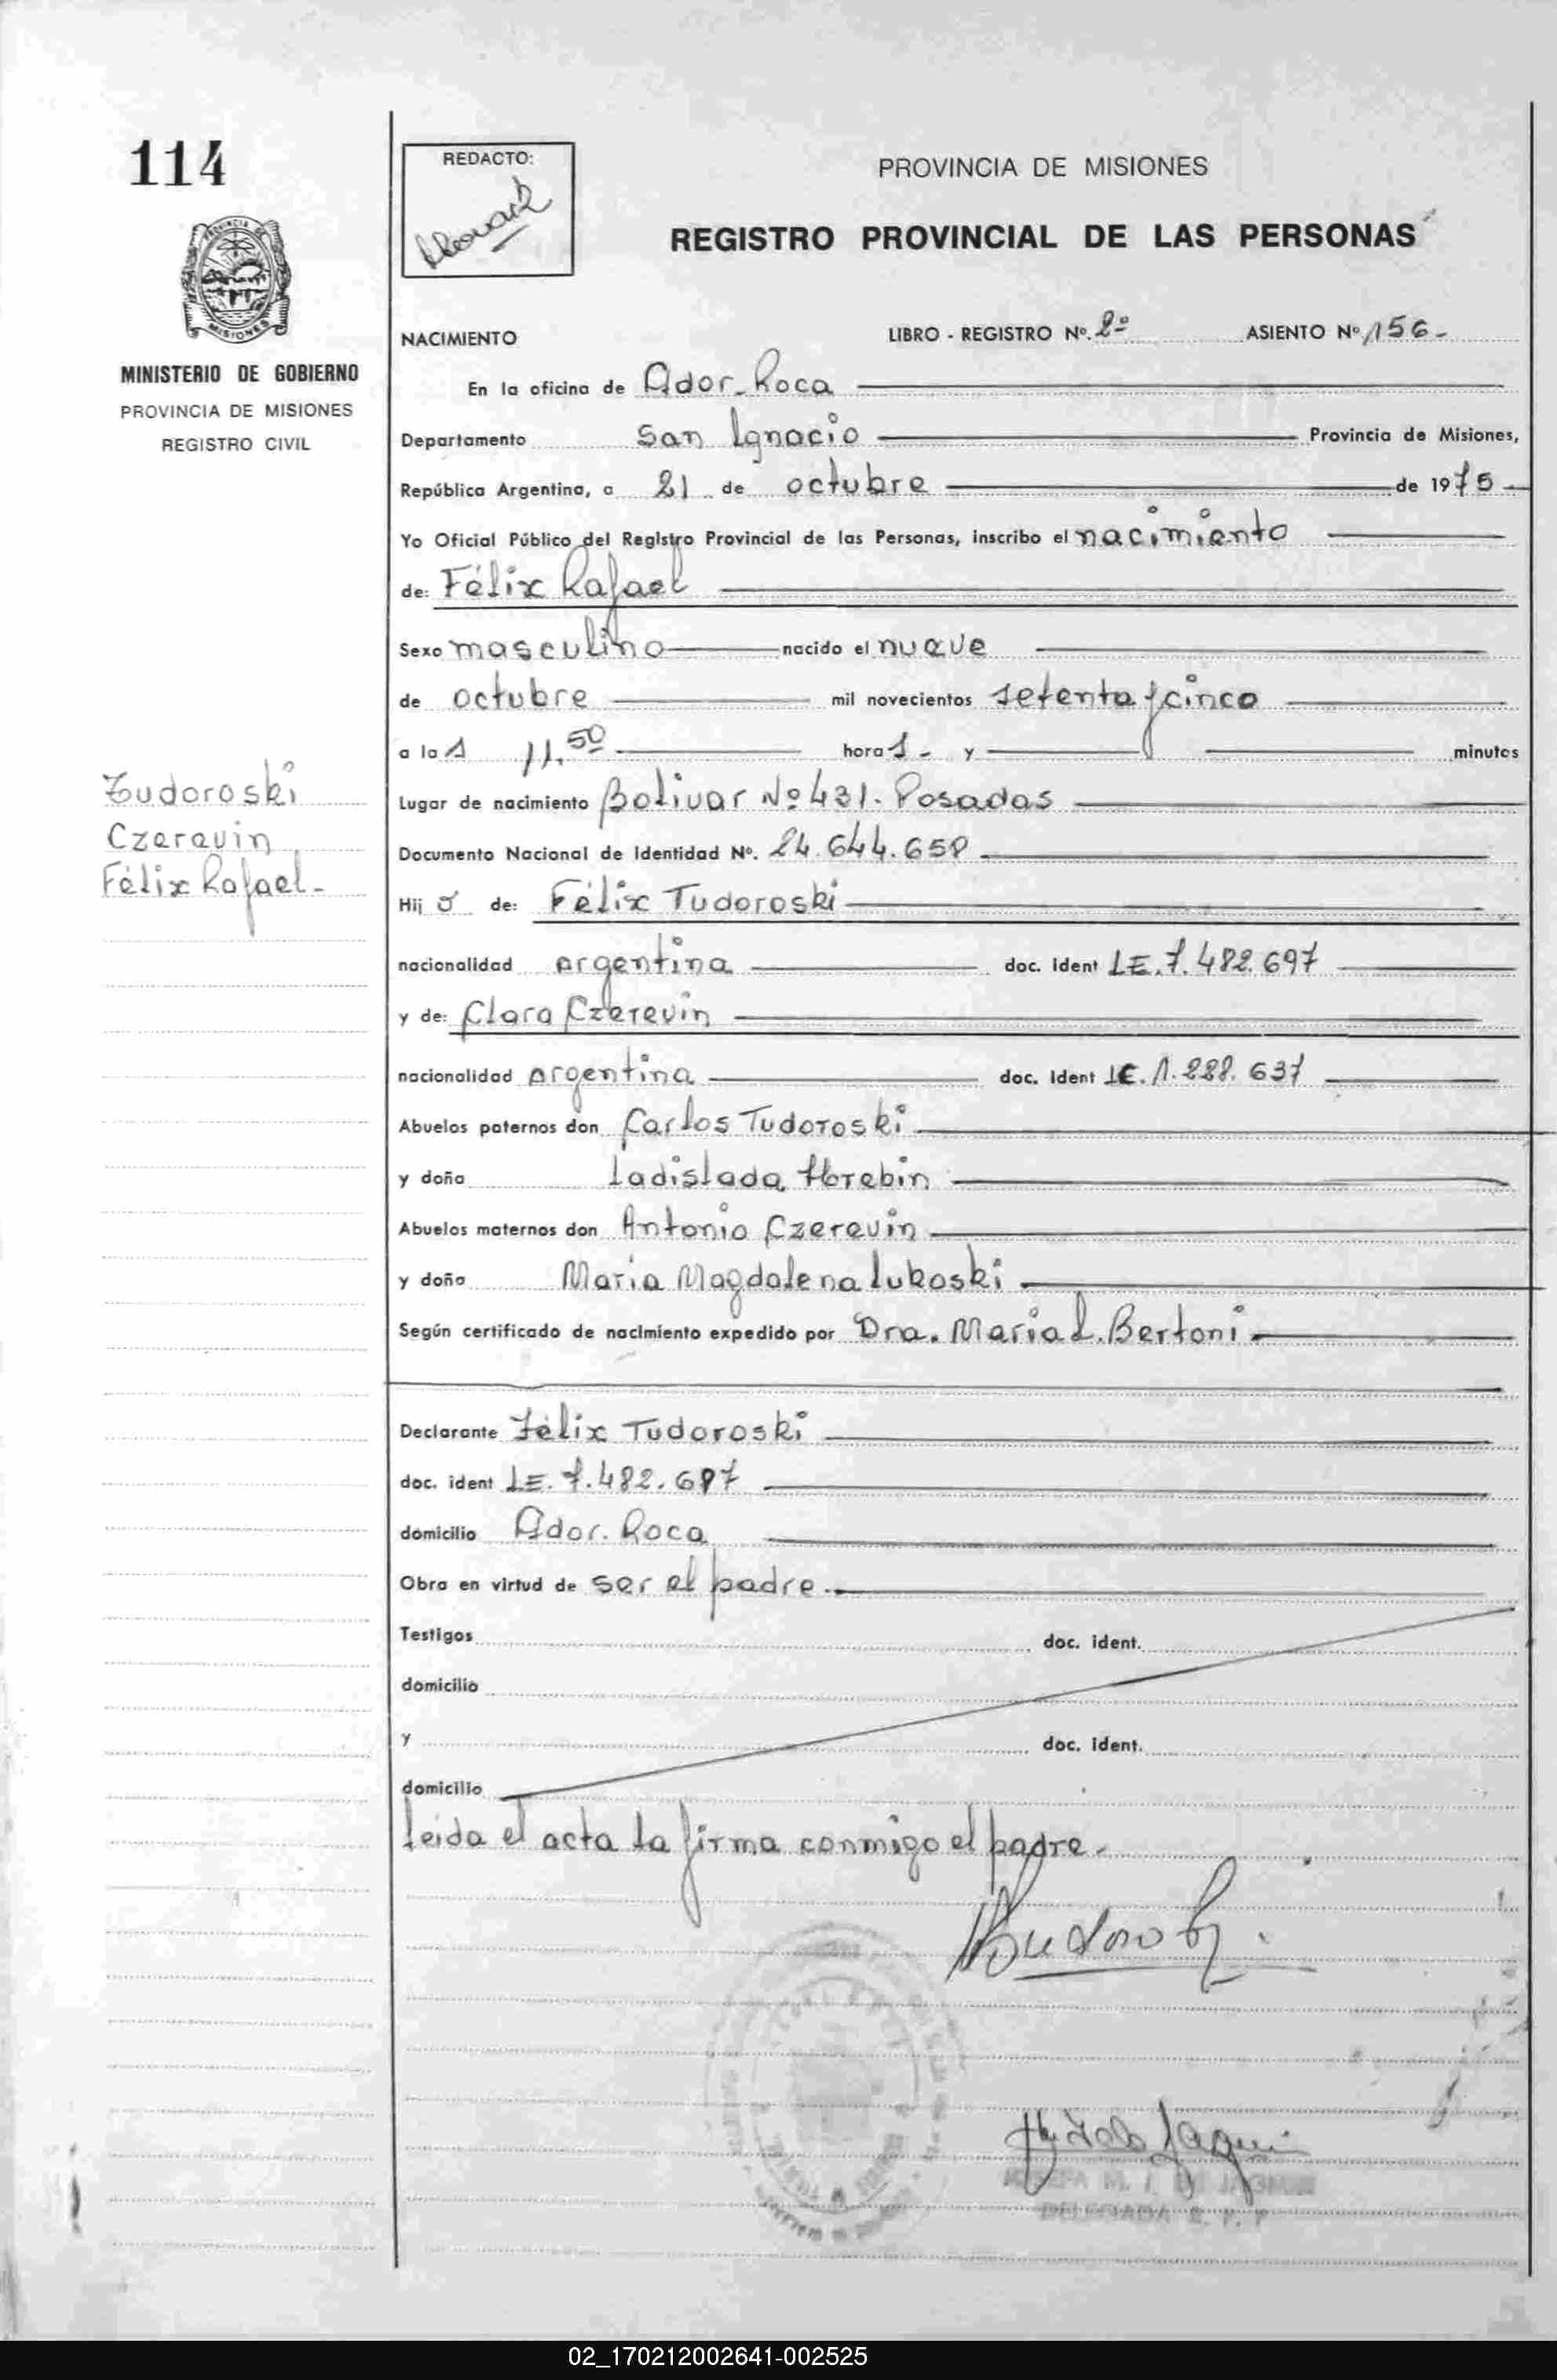 114
REDACTO:
PROVINCIA DE MISIONES
REGISTRO PROVINCIAL DE LAS PERSONAS
MINISTERIO DE GOBIERNO
PROVINCIA DE MISIONES
REGISTRO CIVIL
NACIMIENTO LIBRO - REGISTRO Nº. 2º ASIENTO Nº 156-
En la oficina de Ador. Roca
Departamento San Ignacio Provincia de Misiones,
República Argentina, a 21 de octubre de 1975
Yo Oficial Público del Registro Provincial de las Personas, inscribo el nacimiento
de: Félix Rafael
Sexo masculino nacido el nueve
de octubre mil novecientos setenta y cinco
a las 11.50 horas - y minutos
Tudoroski
Czerevin
Félix Rafael-
Lugar de nacimiento Bolivar Nº 431. Posadas
Documento Nacional de Identidad Nº. 24.644.65
Hijo de: Félix Tudoroski
nacionalidad argentina doc. ident LE. 7.482.697
y de: Clara Czerevin
nacionalidad argentina doc. ident 637
Abuelos paternos don Carlos Tudoroski
y doña Ladislada Horebin
Abuelos maternos don Antonio Czerevin
y doña Maria Magdalena Lukoski
Según certificado de nacimiento expedido por Dra. Maria L. Bertoni
Declarante Félix Tudoroski
doc. ident LE. 7.482.697
domicilio Ador. Roca
Obra en virtud de ser el padre.
Testigos doc. ident.
domicilio
y doc. ident.
domicilio
Leida el acta la firma conmigo el padre.
02_170212002641-002525